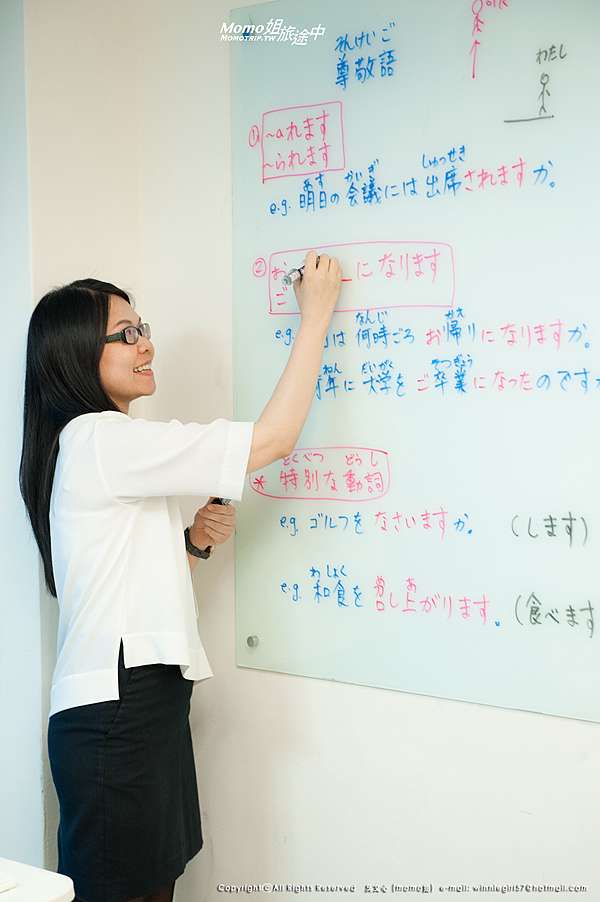 Momo姐旅途中
MOMOTRIP.TW
そんけいご
尊敬語
わたし
① ~aれます
~られます
あす かいぎ しゅっせき
e.g. 明日の会議には出席されますか。
② お になります
ご
なんじ かえ
e.g. は何時ごろ お帰りになりますか。
ねん だいがく そつぎょう
年に大学をご卒業になったのです
とくべつ どうし
* 特別な動詞
e.g. ゴルフを なさいますか。 (します)
わしょく め あ
e.g. 和食を 召し上がります。 (食べます
Copyright © All Rights Reserved (momo姐) e-mail: winniegirl57@hotmail.com